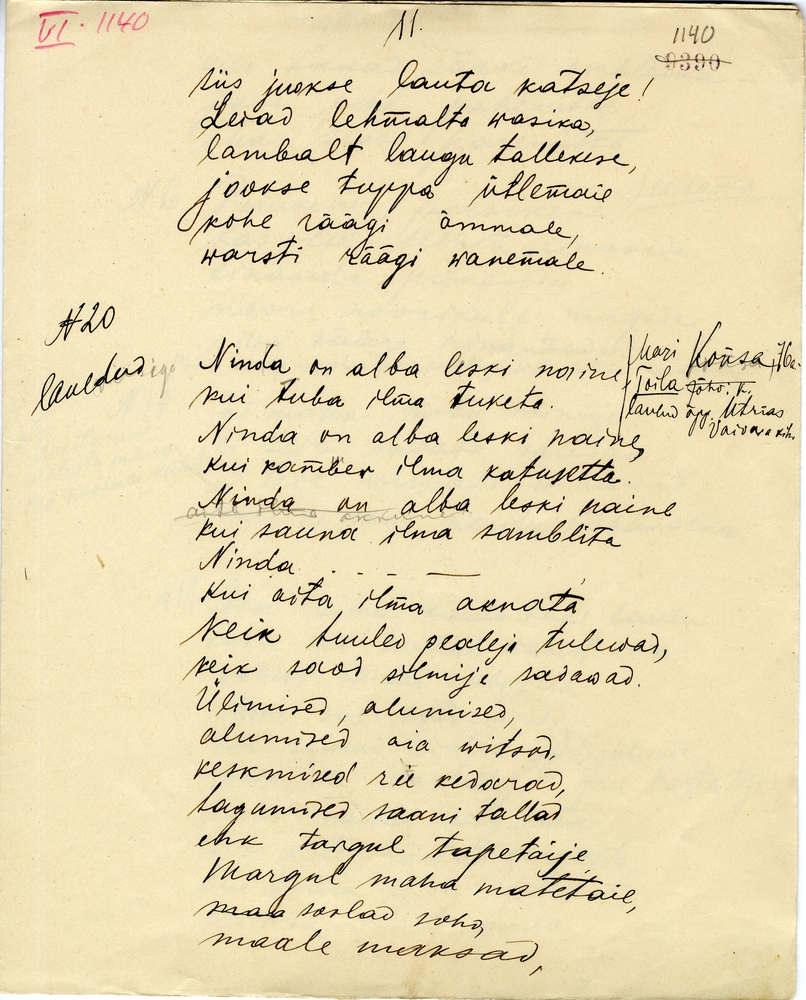 VI. 1140
11.
1140
9390
siis jookse lauta katseje!
Leiad lehmalta wasika,
lambalt laugu tallekese,
jookse tuppa ütlemaie
kohe räägi ämmale,
warsti räägi wanemale.
N 20
lauldud
Ninda on alba leski naine,
kui tuba ilma tuketa.
Mari Konsa, 76 a.
Toila Jõhvi k.
laulud õpp. Utrias
Vaivara kih.
Ninda on alba leski naine,
kui kamber ilma katusetta.
Ninda on alba leski naine
kui sauna ilma samblita
Ninda . . . — —
Kui aita ilma aknata
Keik tuuled pealeja tulewad,
keik saod silmije sadawad.
Ülimised, alumised,
alumised aia witsad,
keskmised ree kedarad,
tagumised saani tallad
ehk targul tapetaije
Margul maha matetaie,
maa sorlad soho,
maale maksad,